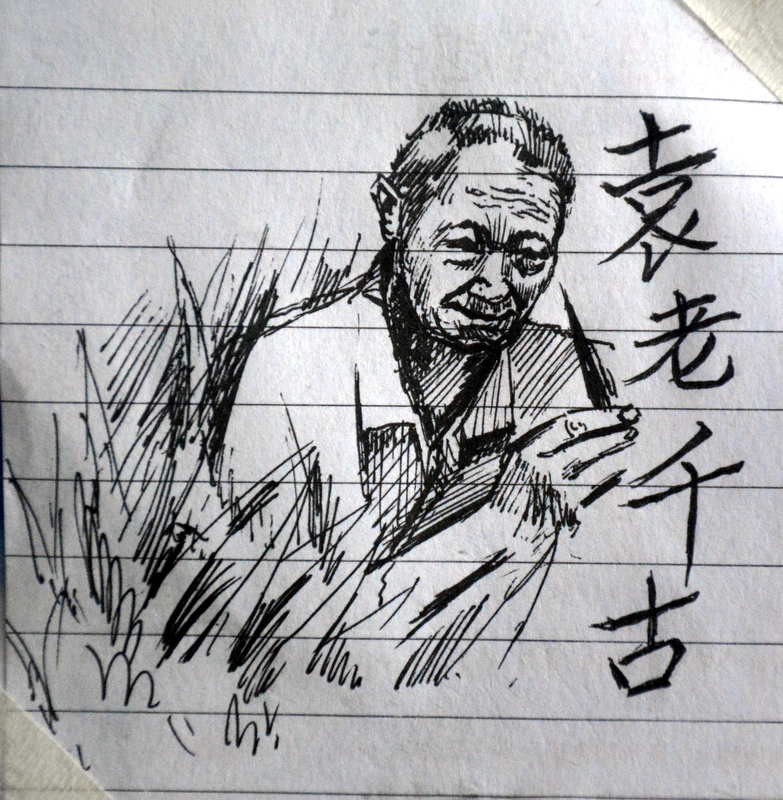 袁老千古